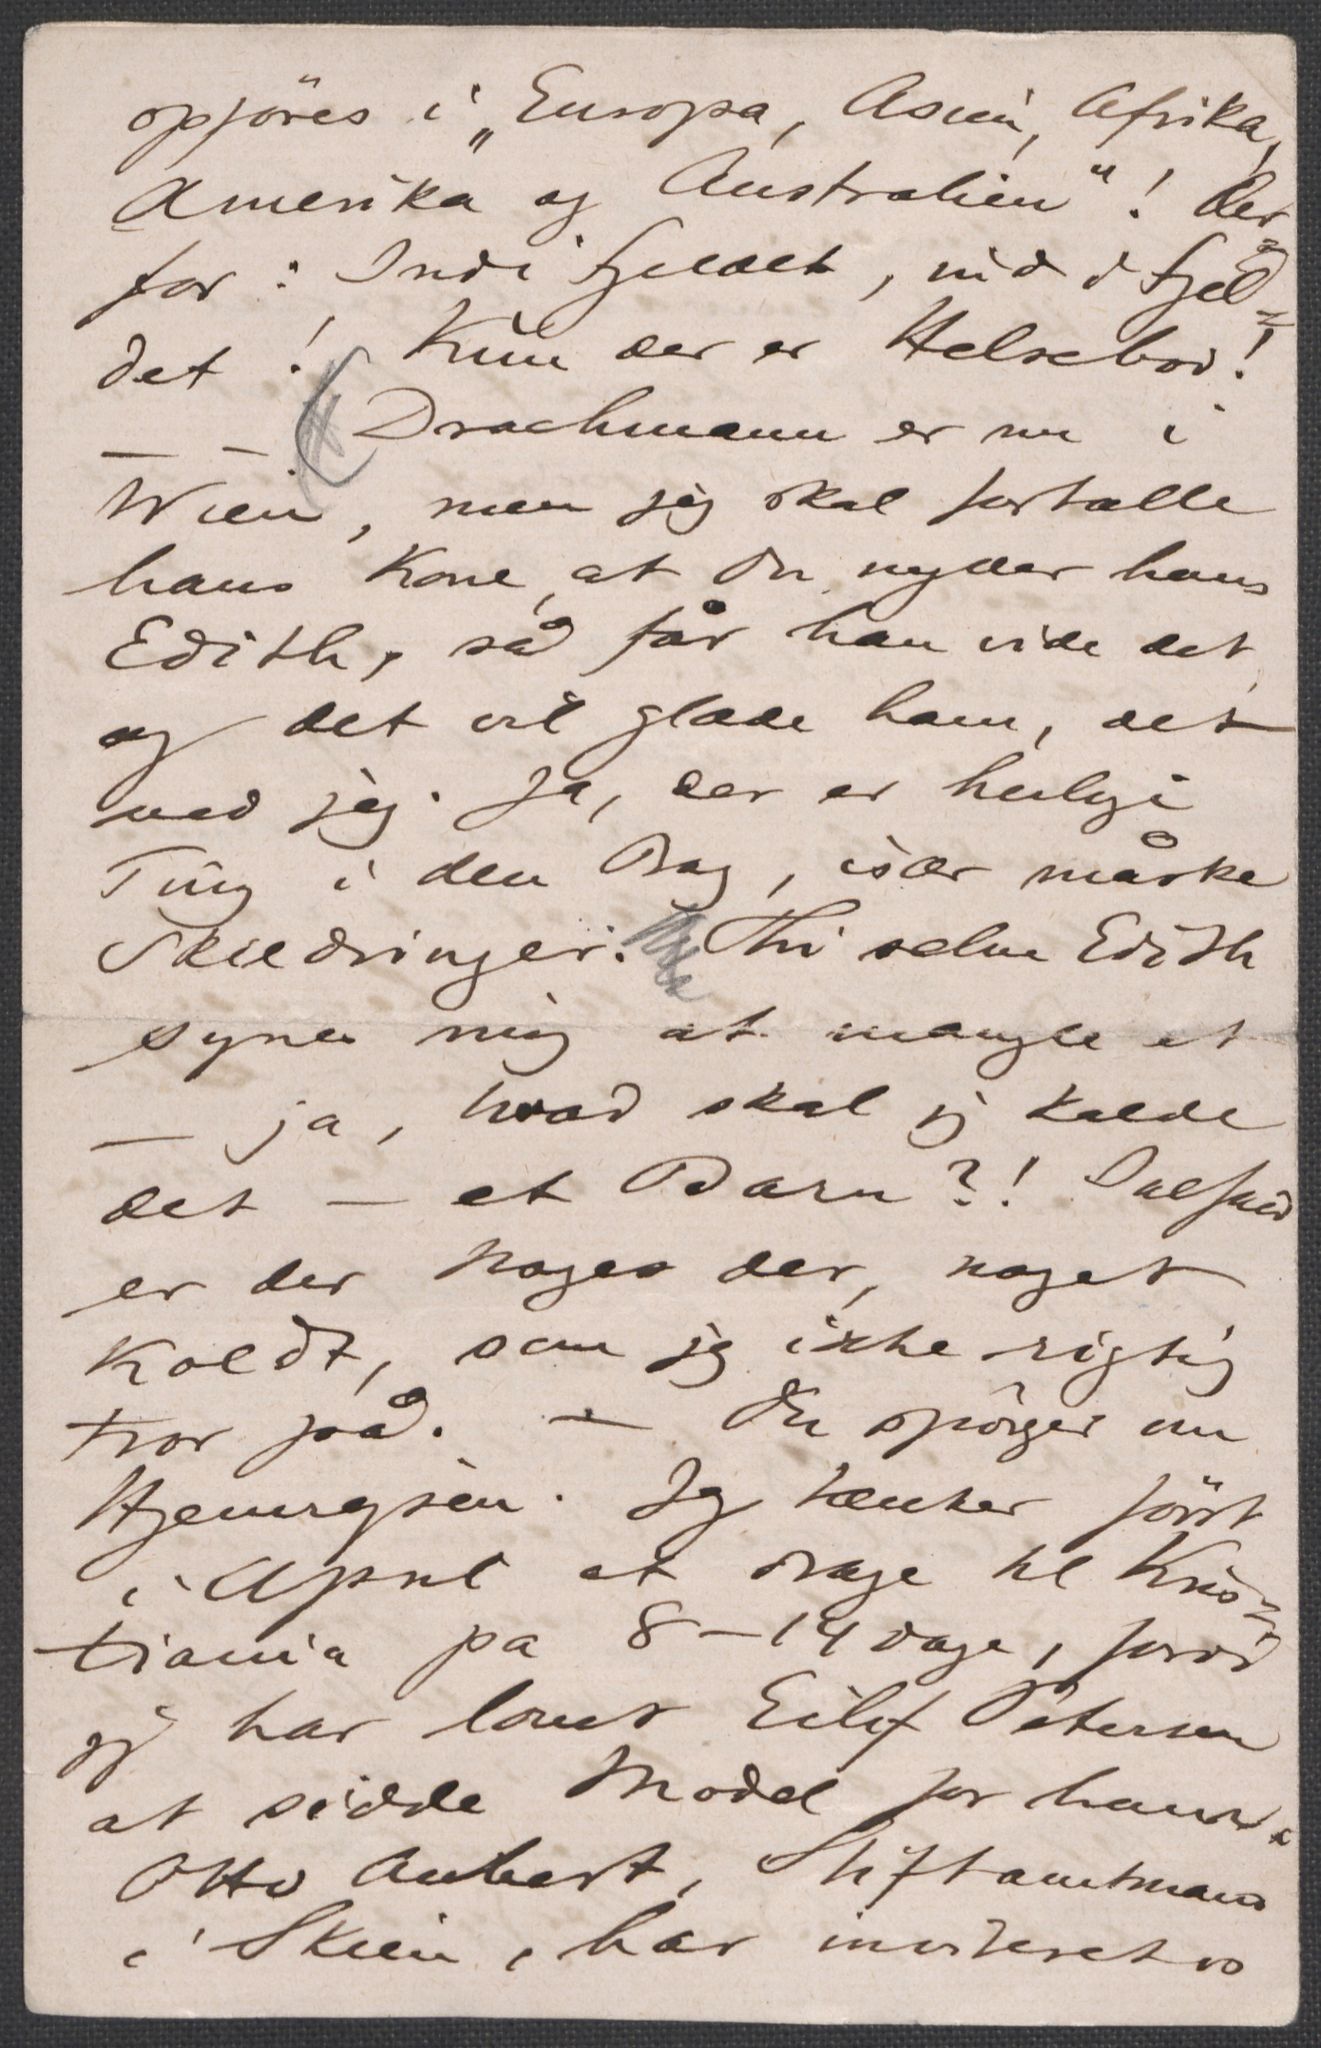 opføres i „Europa, Asien, Afrika,
Amerika og Australien“! Der-
for: Ind i Fjeldet, ind i Fjel-
det! Kun der er Helsebod!
— — (Drachmann er nu i
Wien, men jeg skal fortælle
hans Kone, at Du nyder hans
Edith, så får han vide det,
og det vil glæde ham, det
ved jeg. Ja, der er herlige
Ting i den Bog, især måske
Skildringer. Thi selve Edith
synes mig at mangle et
— ja, hvad skal jeg kalde
det — et Barn?! Ialfald
er der noget der, noget
Koldt, som jeg ikke rigtig
tror på. — Du spörger om
Hjemrejsen. Jeg tænker först
i April at drage til Kris-
tiania på 8–14 dage, fordi
jeg har lovet Eilif Petersen
at sidde Model for ham.
Otto Aubert, Stiftamtmand
i Skien, har inviteret os